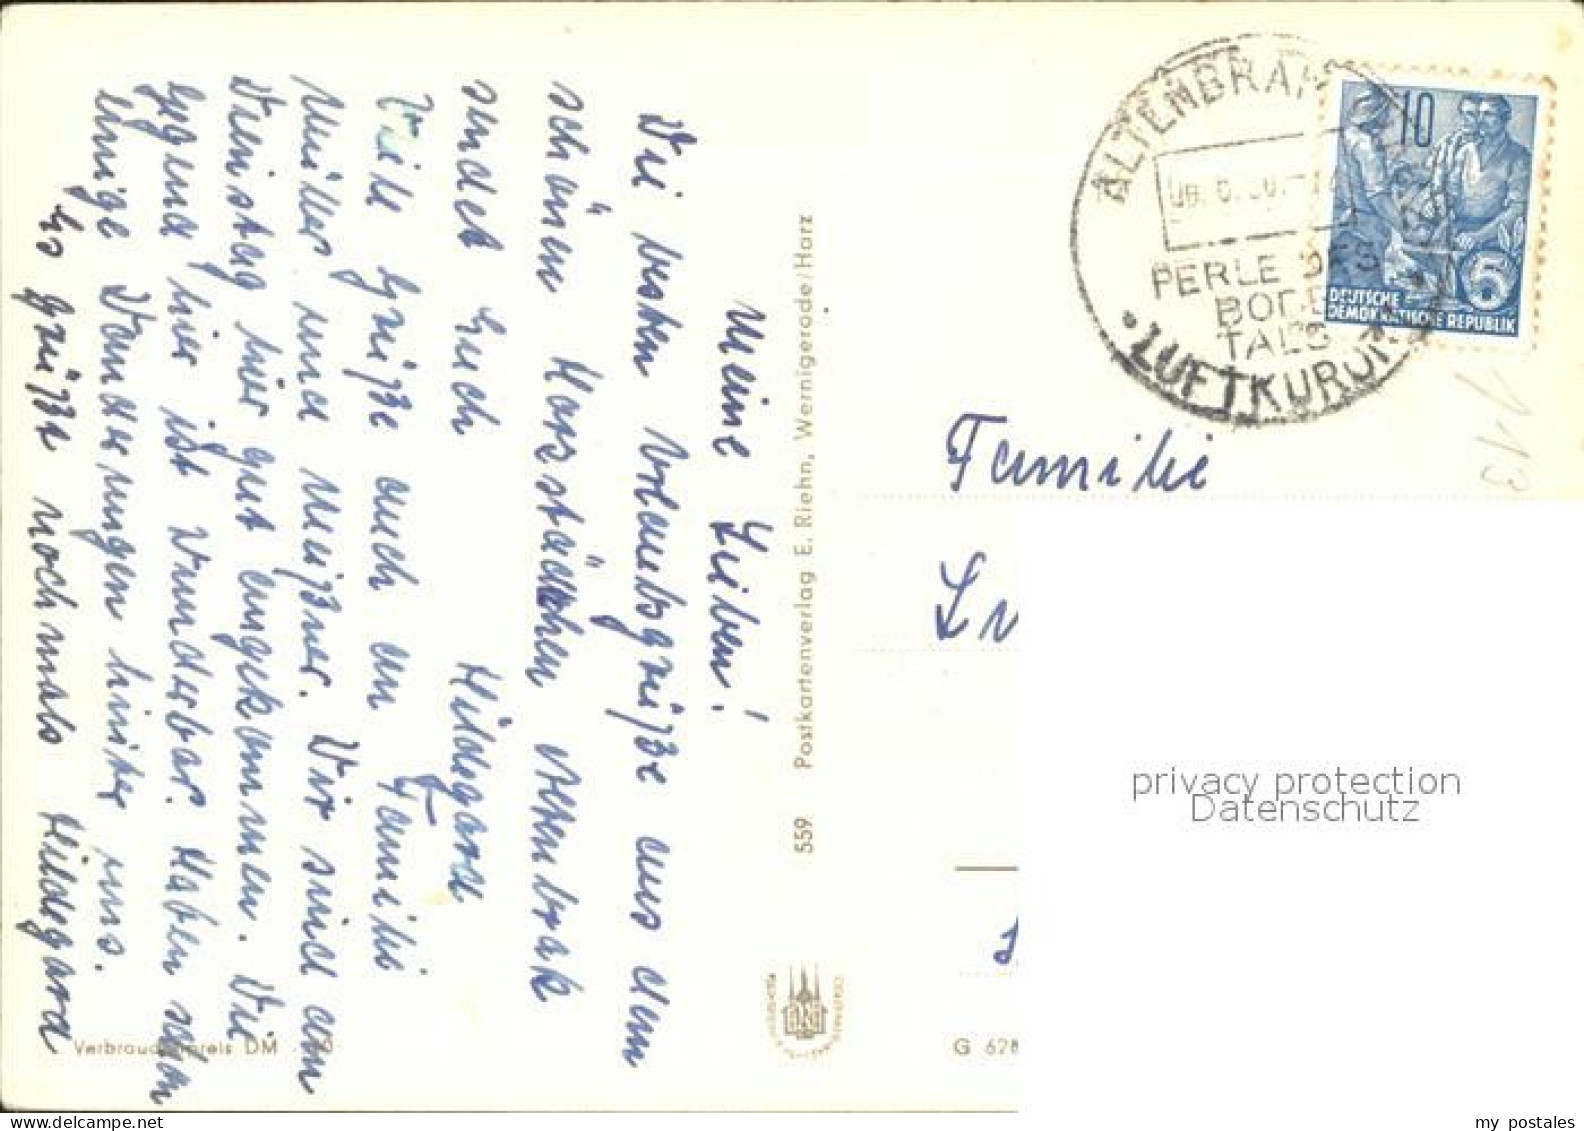 Meine Lieben!
Die besten Urlaubsgrüße aus dem
schönen Harzstädtchen Altenbrak
sendet Euch Hildegard
Viele Grüße auch an Familie
Müller und Meißner. Wir sind am
Dienstag hier gut angekommen. Die
Gegend hier ist wunderbar. Haben schon
einige Wanderungen hinter uns.
Es grüßt nochmals Hildegard
Verbraucherpreis DM
559 Postkartenverlag E. Riehn, Wernigerode/Harz
ALTENBRAK
PERLE DES
BODE
TALES
LUFTKURORT
10
5
DEUTSCHE
DEMOKRATISCHE REPUBLIK
113
Familie
G 628
privacy protection
Datenschutz
my postales